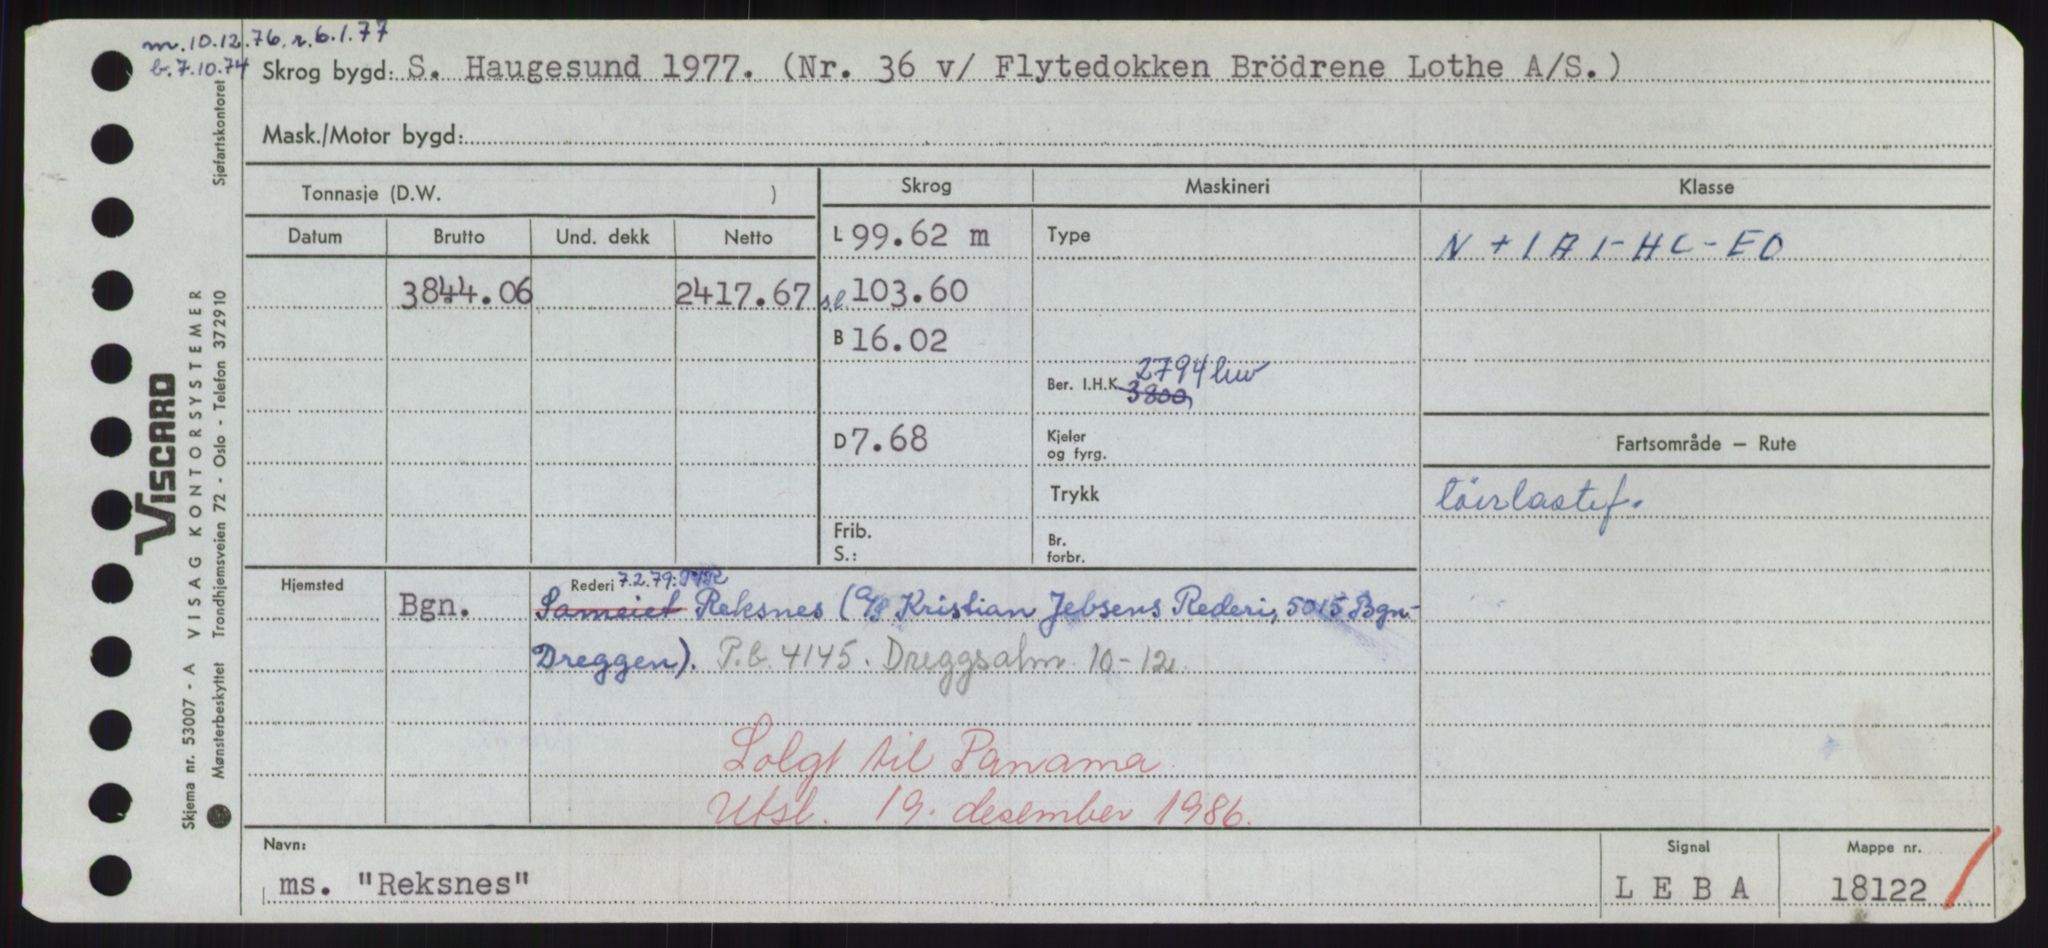 m. 10.12.76, r. 6.1.77
b. 7.10.74
Skrog bygd: S. Haugesund 1977. (Nr. 36 v/ Flytedokken Brödrene Lothe A/S.)
Mask./Motor bygd:
Tonnasje (D.W. )
Skrog
Maskineri
Klasse
Datum
Brutto
Und. dekk
Netto
L 99.62 m
Type
N + 1 A 1 - H C - E O
3844.06
2417.67
s.l. 103.60
B 16.02
2794 kw
Ber. I.H.K. 3800
D 7.68
Kjeler
og fyrg.
Fartsområde – Rute
Trykk
Frib.
S.:
Br.
forbr.
Hjemsted
Rederi 7.2.79: P/R
Bgn.
Sameiet Reksnes (A/S Kristian Jebsens Rederi, 5015 Bgn-
Dreggen). P.b. 4145. Dreggsalm. 10-12
Solgt til Panama
Utsl. 19. desember 1986.
Navn:
ms. "Reksnes"
Signal
L E B A
Mappe nr.
18122
VISCARD
VISAG KONTORSYSTEMER
Skjema nr. 53007 - A
Sjøfartskontoret
Trondhjemsveien 72 - Oslo - Telefon 372910
Mønsterbeskyttet